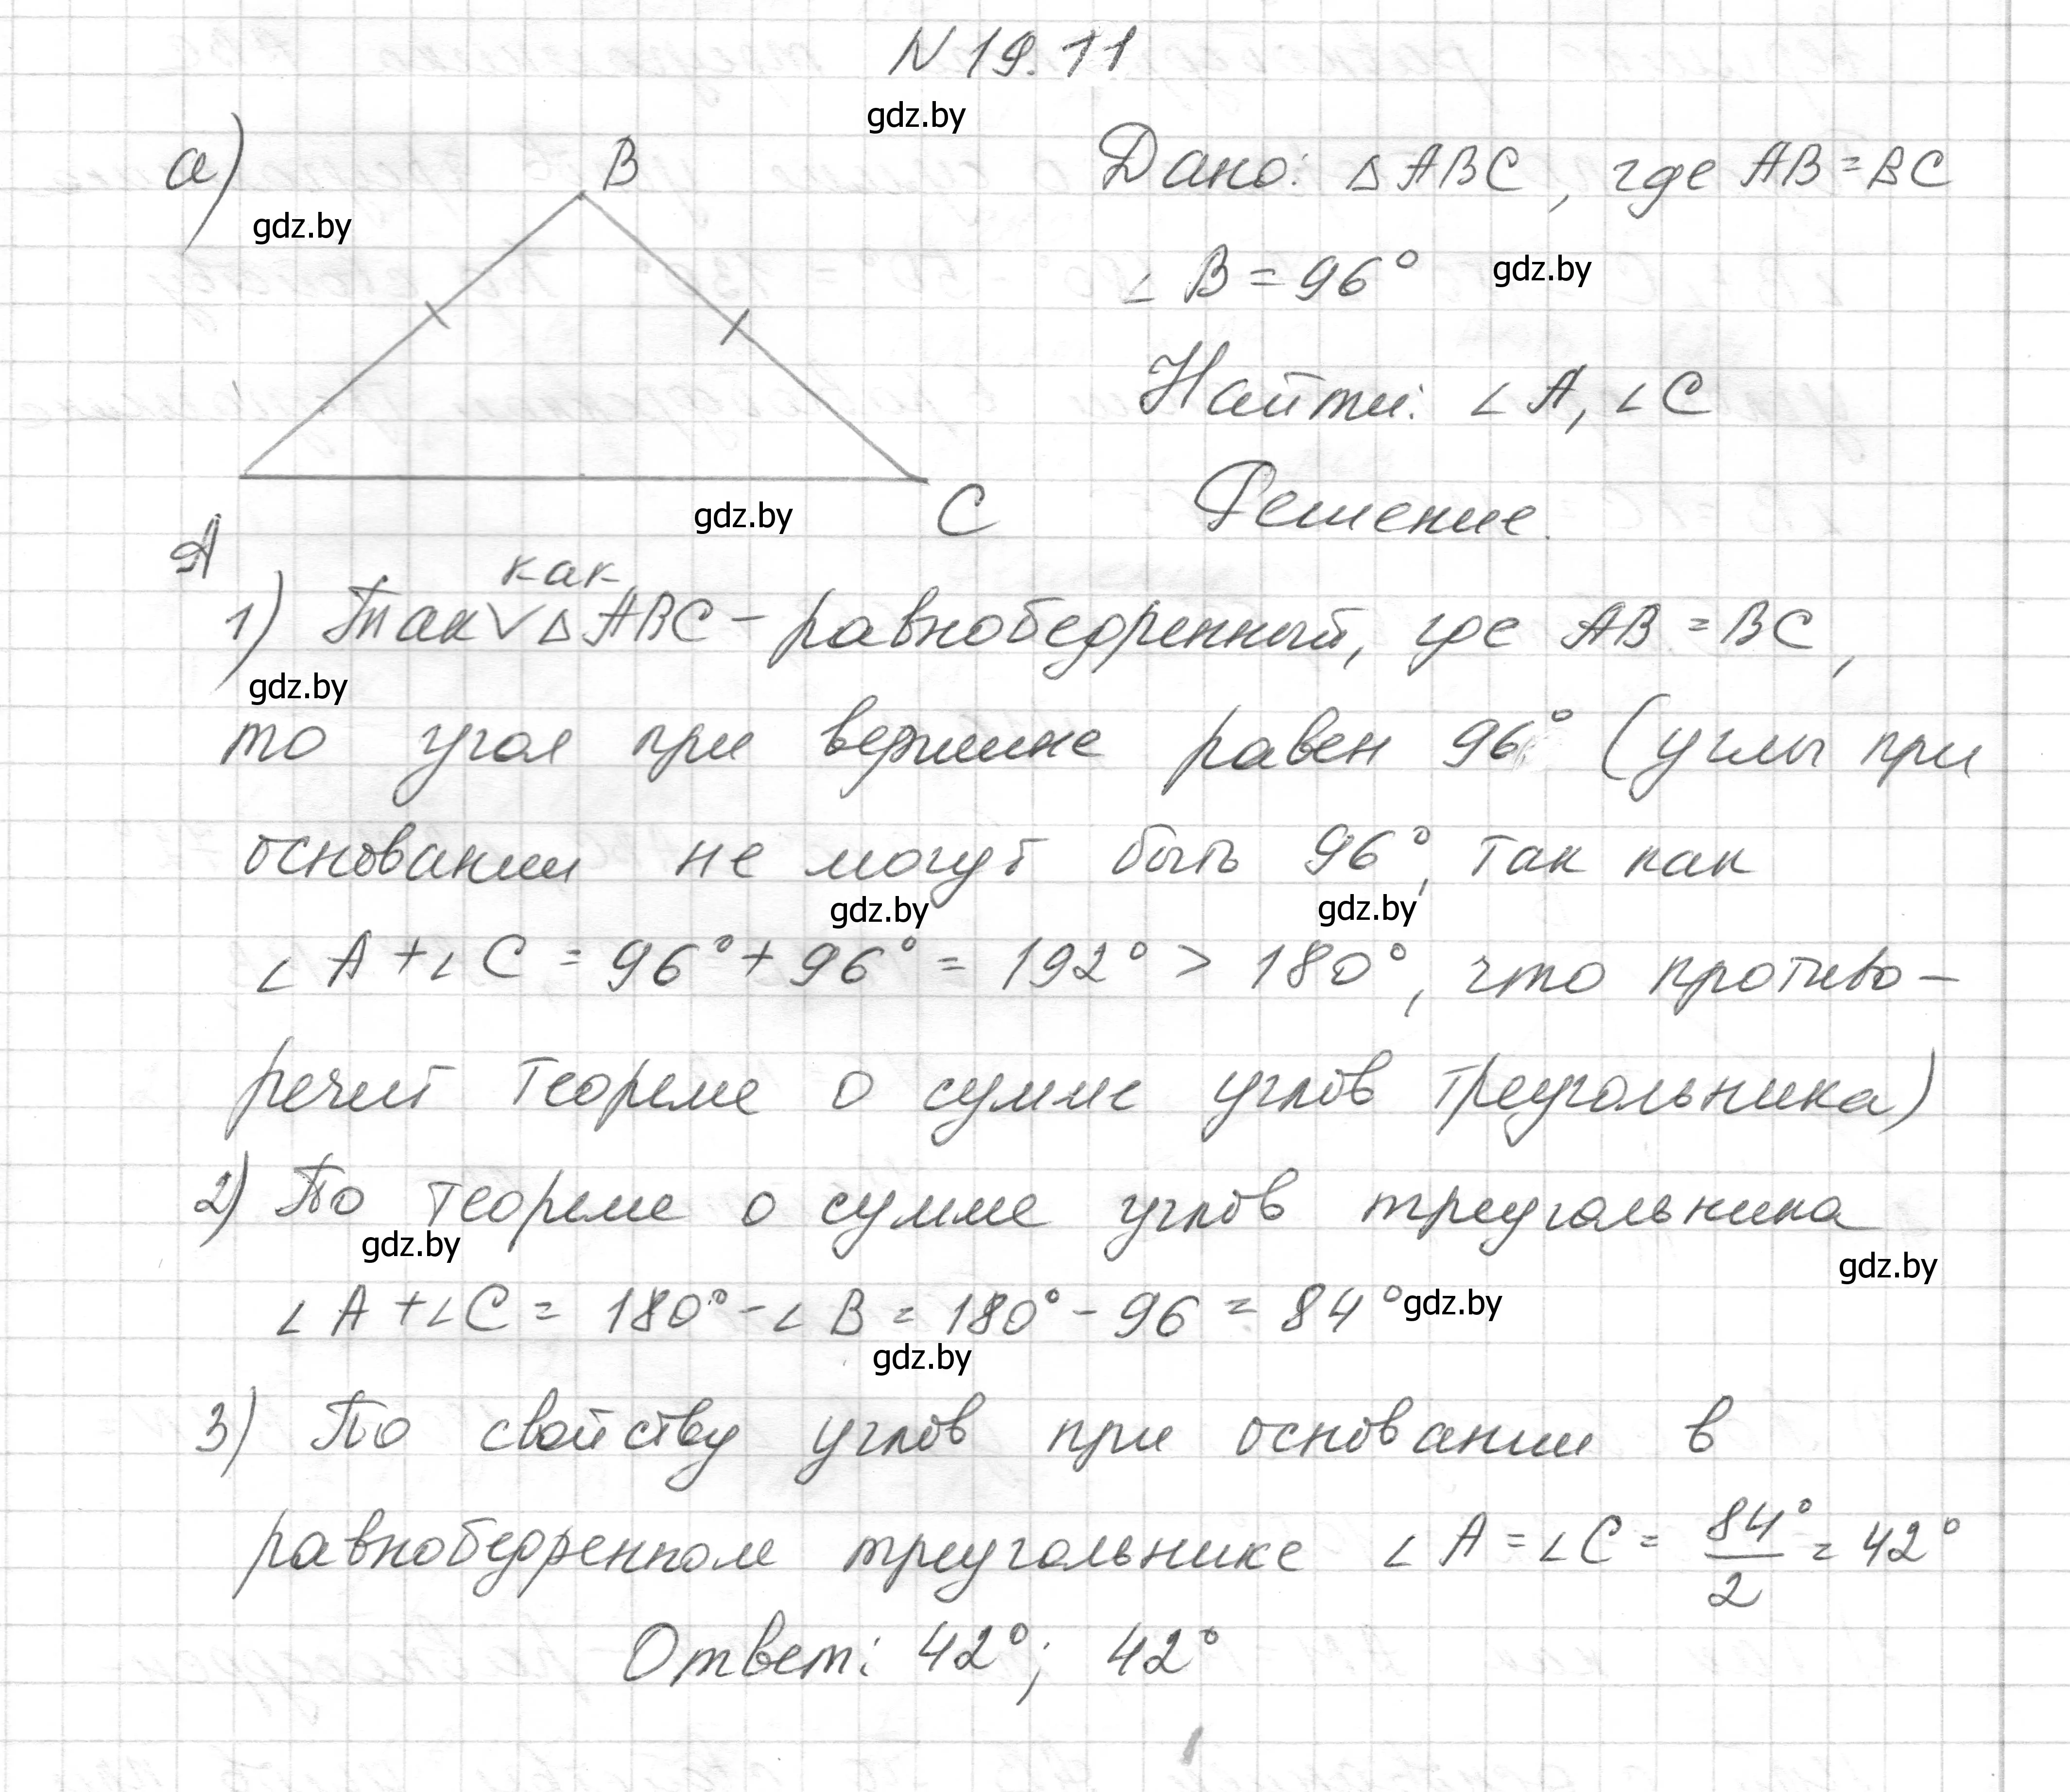 N 19.11
gdz.by
а)
B
gdz.by
Дано: △ ABC, где AB = BC
∠ B = 96°
gdz.by
Найти: ∠ A, ∠ C
A
C
gdz.by
Решение.
как
1) Так∨ △ ABC - равнобедренный, где AB = BC,
gdz.by
то угол при вершине равен 96° (углы при
основании не могут быть 96°, так как
gdz.by gdz.by
∠ A + ∠ C = 96° + 96° = 192° > 180°, что противо-
речит теореме о сумме углов треугольника)
2) По теореме о сумме углов треугольника
gdz.by gdz.by
∠ A + ∠ C = 180° - ∠ B = 180° - 96 = 84° gdz.by
gdz.by
3) По свойству углов при основании в
равнобедренном треугольнике ∠ A = ∠ C = 84°/2 = 42°
Ответ: 42°; 42°